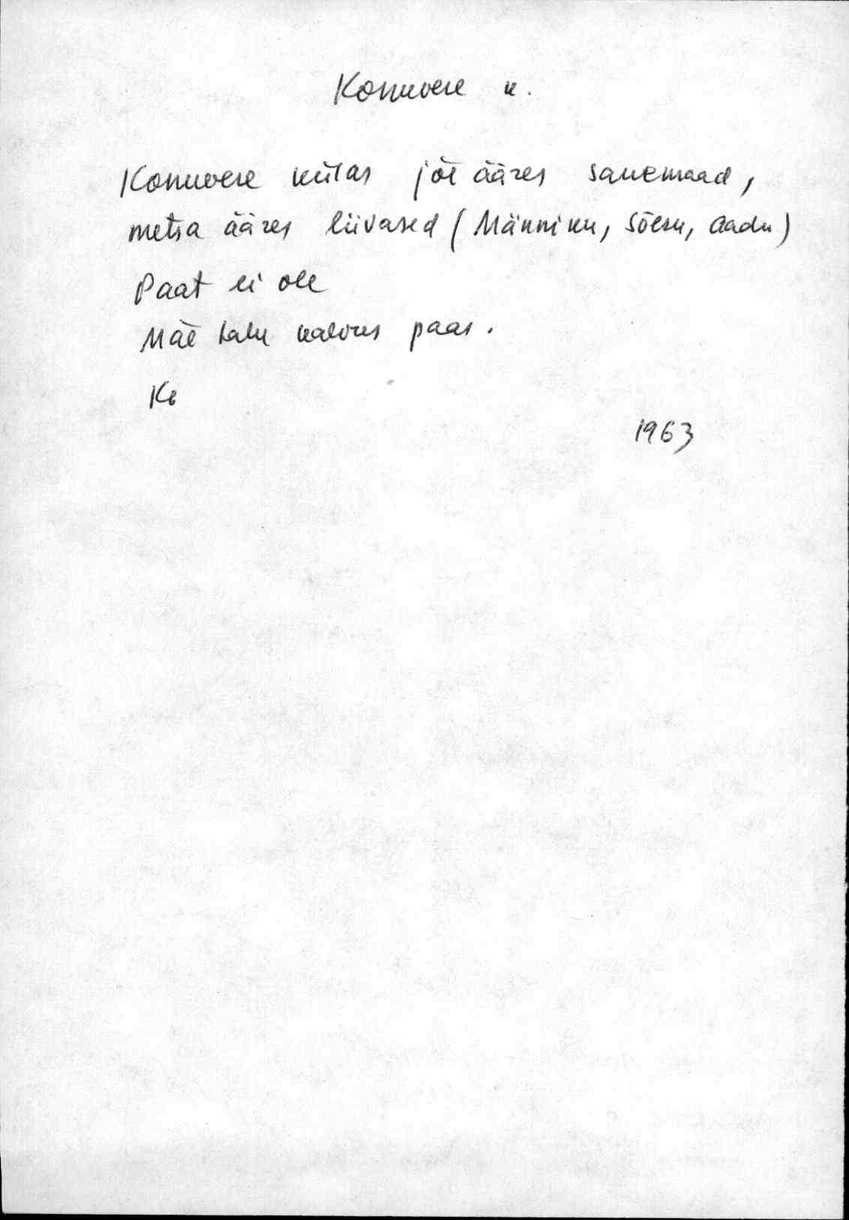 Konuvere k.
Konuvere külas jõe ääres savikmaad,
metsa ääres liivased (Männiku, Sõeru, Aadu)
Paat ei ole
Mäe talu kaevus paas.
Ke
1963